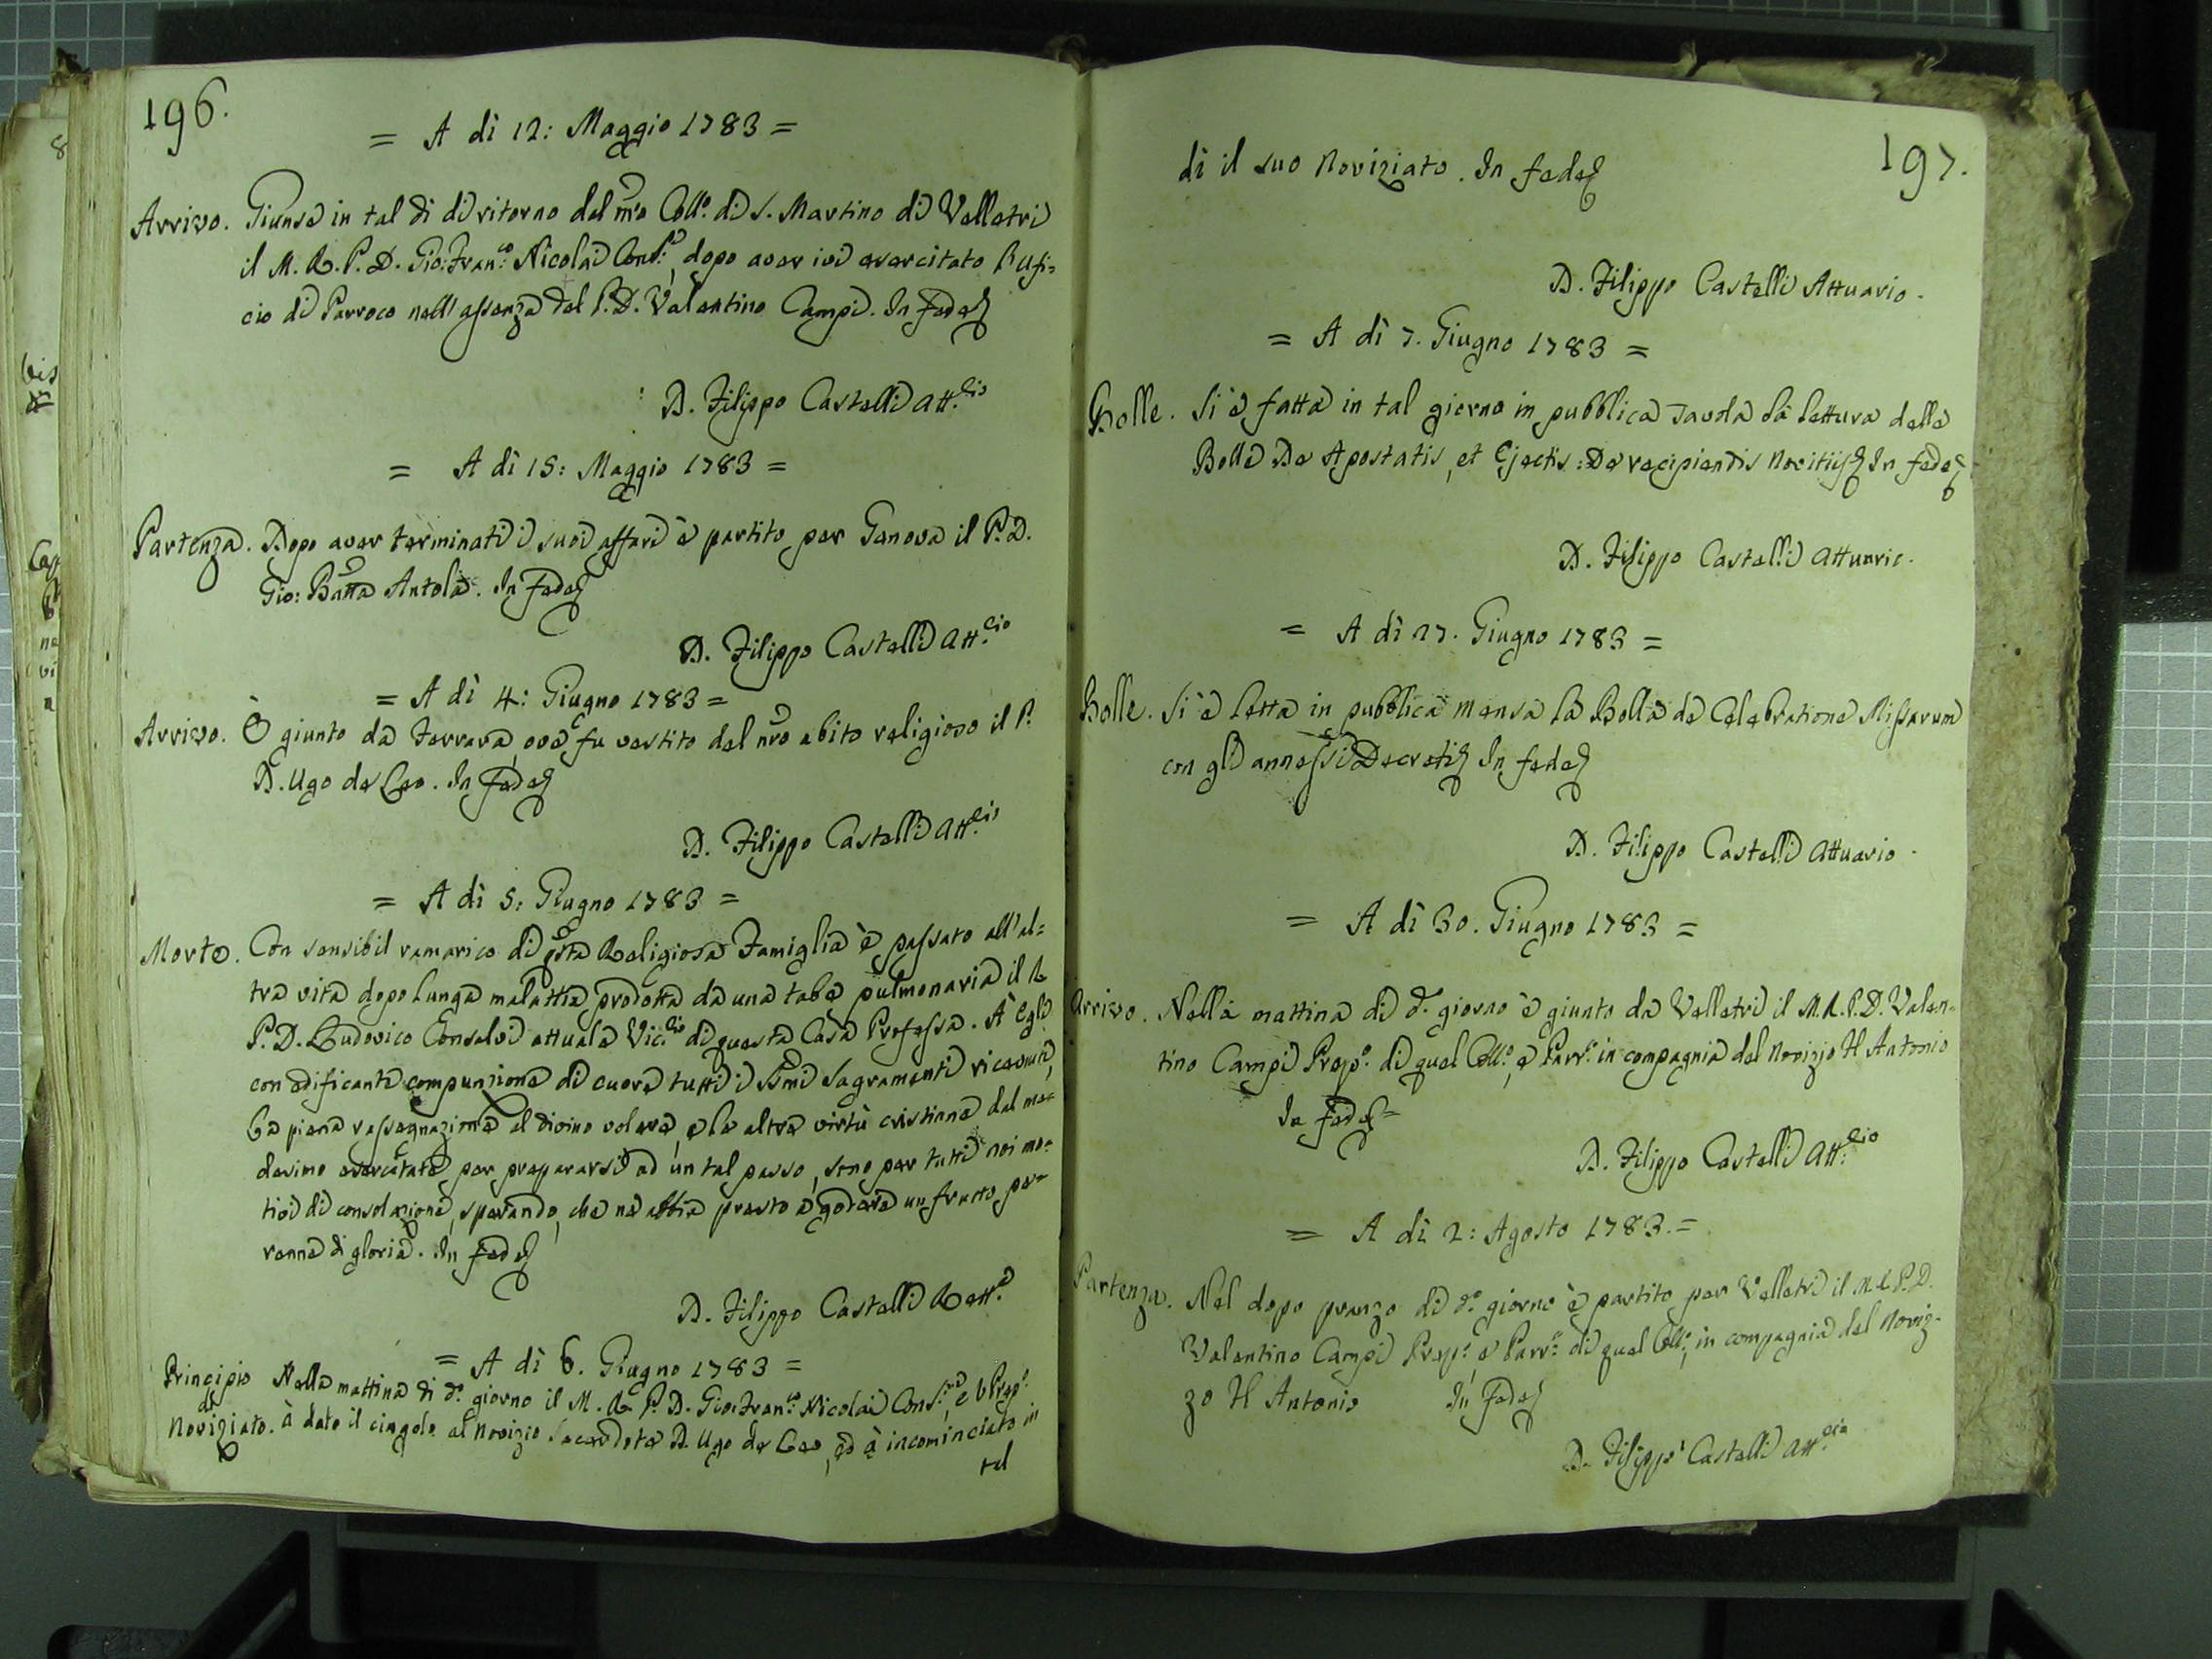 196.
= A dì 12: Maggio 1783 =
Arrivo. Giunse in tal dì di ritorno dal nr̃o Coll.° di S. Martino di Velletri
il M. R. P. D. Gio: Fran.co Nicolai Cons.re, dopo aver ivi esercitato l'Ufi=
cio di Parroco nell'assenza del P. D. Valentino Campi. In fede
D. Filippo Castelli Att.rio
= A dì 15: Maggio 1783 =
Partenza. Dopo aver terminati i suoi affari è partito per Genova il P. D.
Gio: Batta Antola. In fede
D. Filippo Castelli Att.rio
= A dì 4: Giugno 1783 =
Arrivo. È giunto da Ferrara, ove fu vestito del nr̃o abito religioso il P.
D. Ugo de Leo. In fede
D. Filippo Castelli Att.rio
= A dì 5: Giugno 1783 =
Morte. Con sensibil ramarico di qsta Religiosa Famiglia è passato all'al=
tra vita dopo lunga malattia prodotta da una tabe pulmonaria il R.
P. D. Ludovico Consalvi attuale Vic.rio di questa Casa Professa. À Egli
con edificante compunzione di cuore tutti i SSmi Sagramenti ricevuti,
La piena rassegnazione al divino volere, e le altre virtù cristiane dal me=
desimo esercitate per prepararsi ad un tal passo, sono per tutti noi mo=
tivi di consolazione, sperando, che ne abbia presto a godere un frutto pe=
renne di gloria. In fede
D. Filippo Castelli Att.
= A dì 6. Giugno 1783 =
Principio Nella mattina di d.° giorno il M. R. P. D. Gio: Fran.co Nicolai Cons.re, e VPrep.°
di
Noviziato. à dato il cingolo al Novizio Sacerdote D. Ugo de Leo, ed à incominciato in
tal
197.
dì il suo Noviziato. In fede
D. Filippo Castelli Attuario.
= A dì 7. Giugno 1783 =
Bolle. Si è fatta in tal giorno in pubblica Tavola la lettura delle
Bolle De Apostatis, et Ejectis: De recipiendis Novitiis In fede
D. Filippo Castelli Attuario.
= A dì 27. Giugno 1783 =
Bolle. Si è letta in pubblica Mensa la Bolla de Celebratione Missarum
con gli annessi Decreti In fede
D. Filippo Castelli Attuario.
= A dì 30. Giugno 1783 =
Arrivo. Nella mattina di d.° giorno è giunto da Velletri il M. R. P. D. Valen=
tino Campi Prep.° di quel Coll.°, e Parr.° in compagnia del Novizio H Antonio
In fede=
D. Filippo Castelli Att.rio
= A dì 2: Agosto 1783. =
Partenza. Nel dopo pranzo di d.° giorno è partito per Velletri il M. R. P. D.
Valentino Campi Prep.° e Parr.° di quel Coll.°, in compagnia del Noviz=
zo H Antonio In fede
D. Filippo Castelli Att.rio